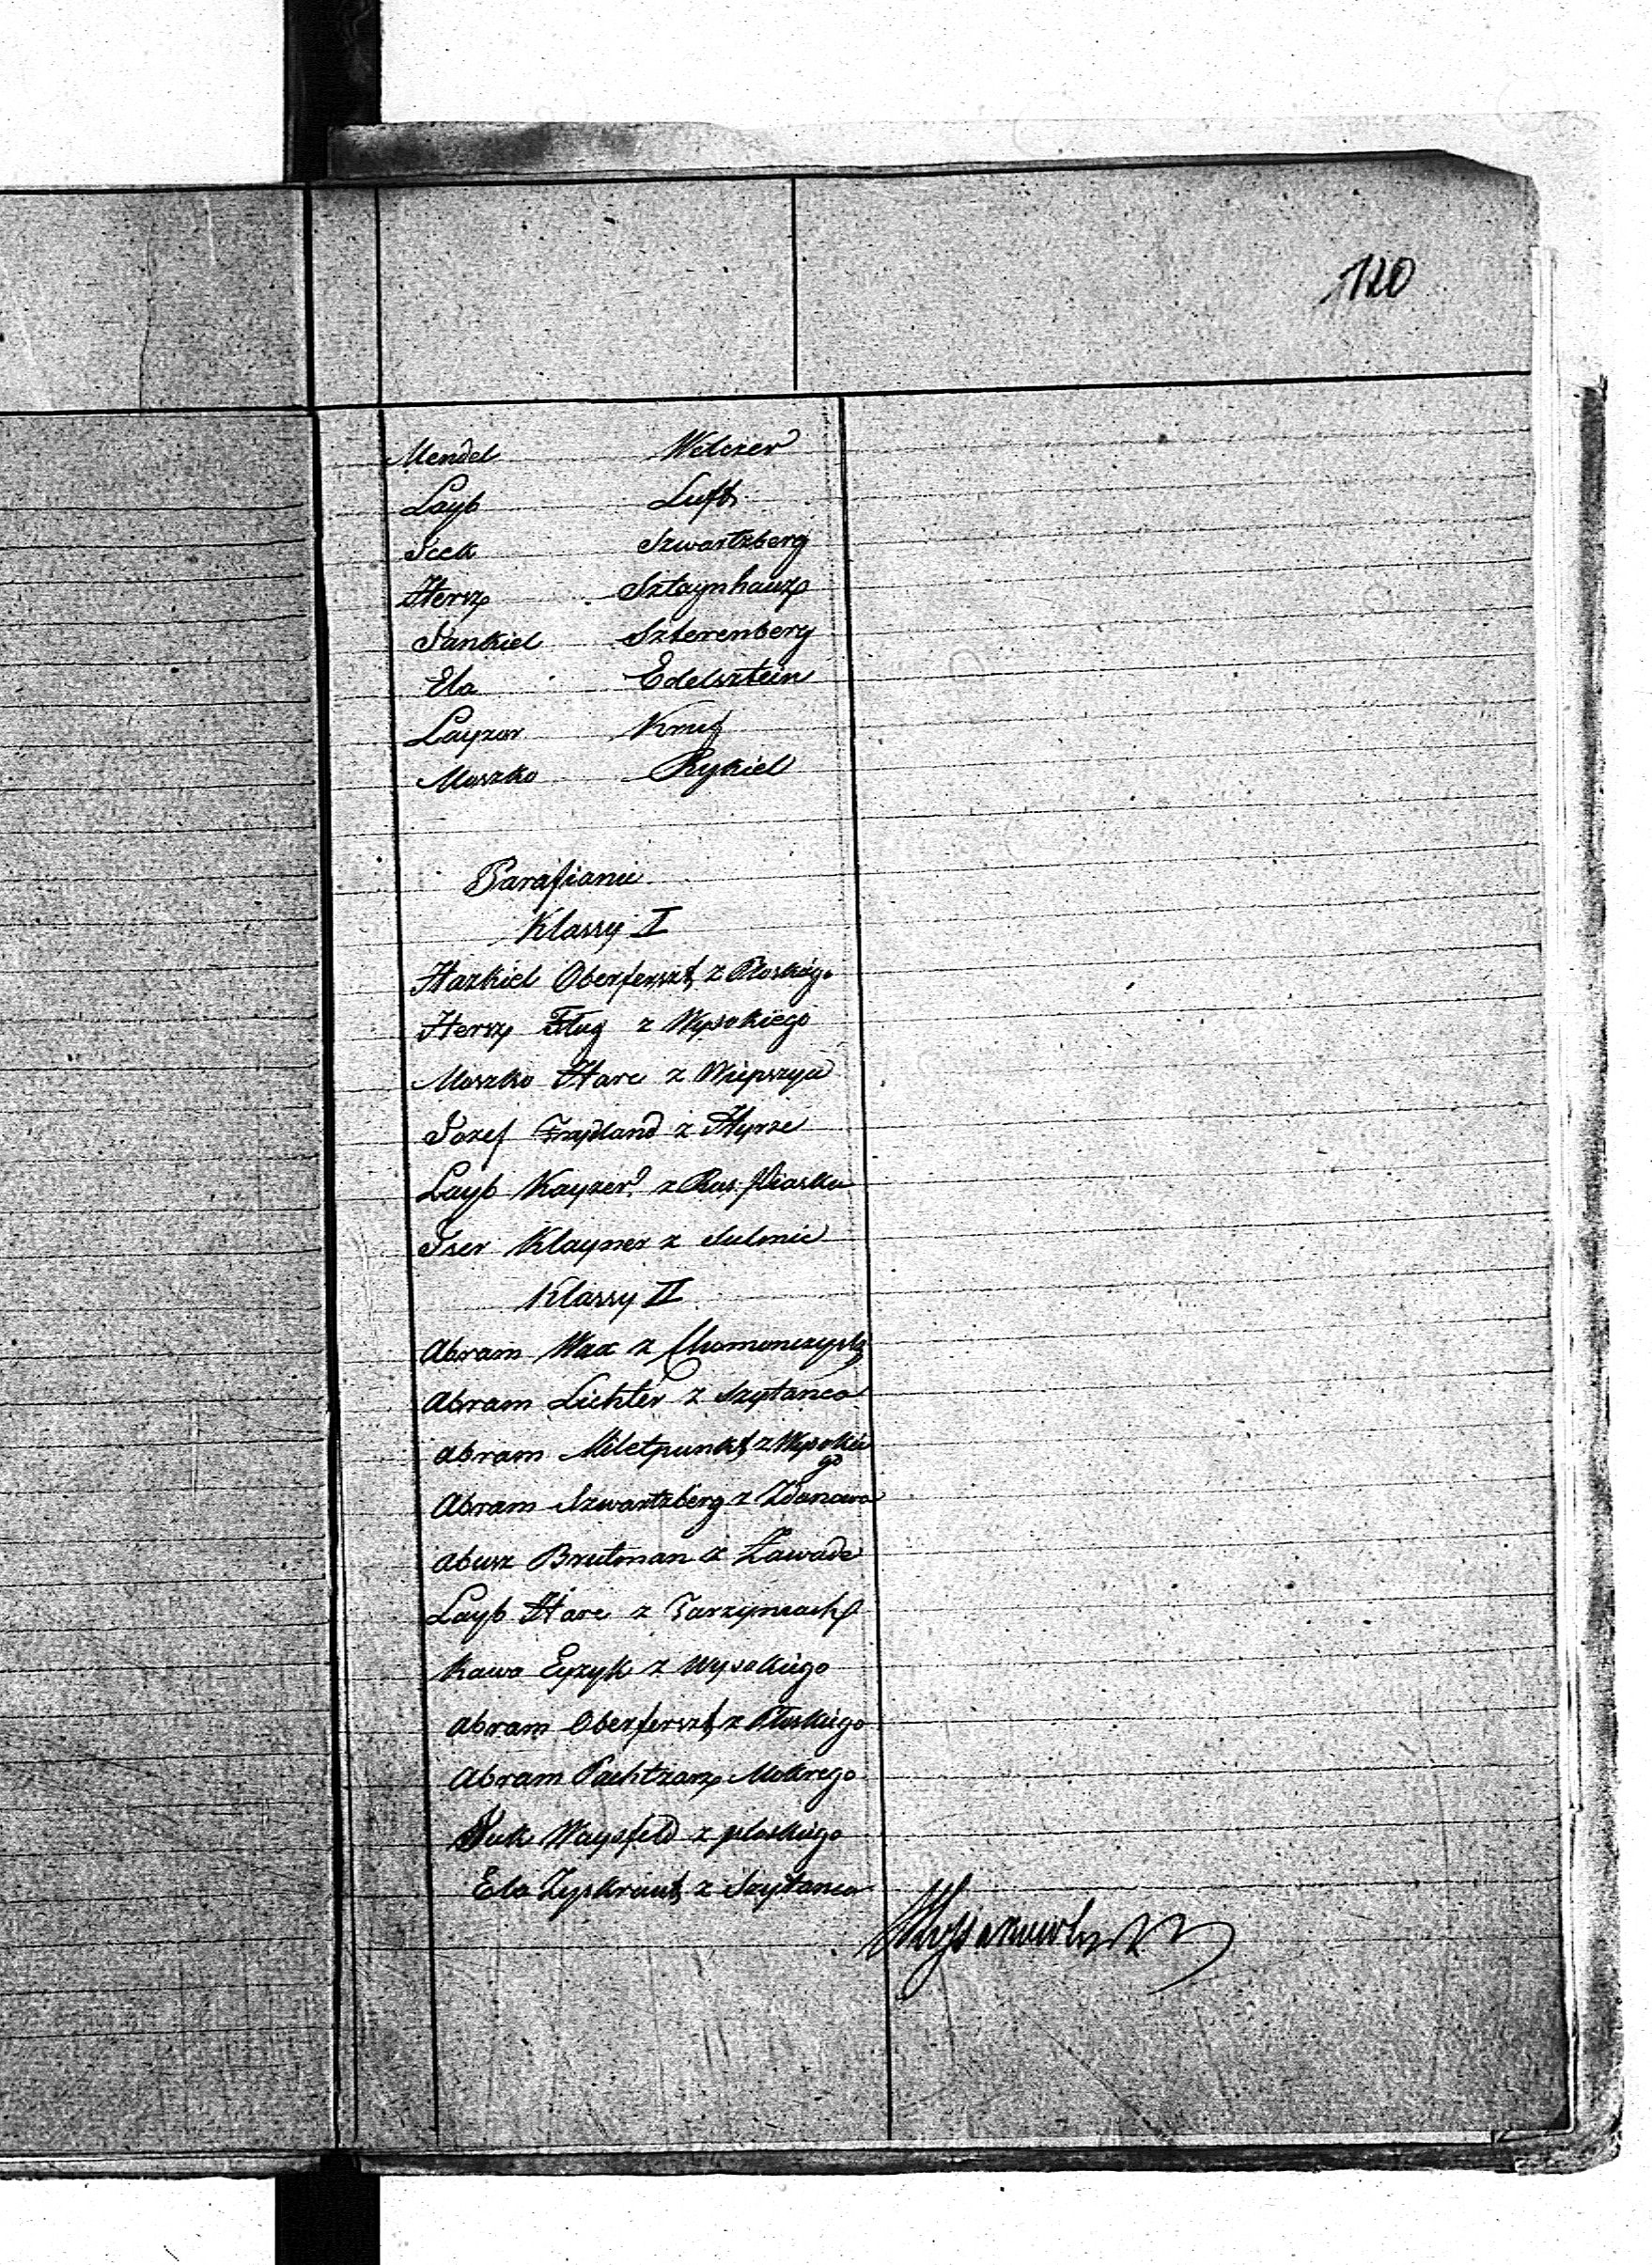 120
Mendel Welczer
Layb Luft
Icek Szwartzberg
Hersz Sztaynhauz
Jankiel Szterenberg
Ela Edelsztein
Layzor Knuf
Moszko Rykiel
Parafianie
Klassy I
Hazkiel Oberferszt z Płoskiego
Hersz Flug z Wysokiego
Moszko Harc z Wiepszyce
Jozef Frajdland z Hyrze
Layb Kayzer z Rus. Piaska
Iser Klayner z Sulmic
Klassy II
Abram Wax z
Abram Lichter z Szytanca
Abram Miletpunkt z Wysokiego
Abram Szwartzberg z Zdanowa
Abusz Brutman z Zawade
Layb Harc z Tarzymiach
Kawa Eyzyk z Wysokiego
Abram Oberferszt z Płoskiego
Abram Pachtzarz Mokrego
Waysfeld z płoskiego
Ela Zyskraut z Szytanca